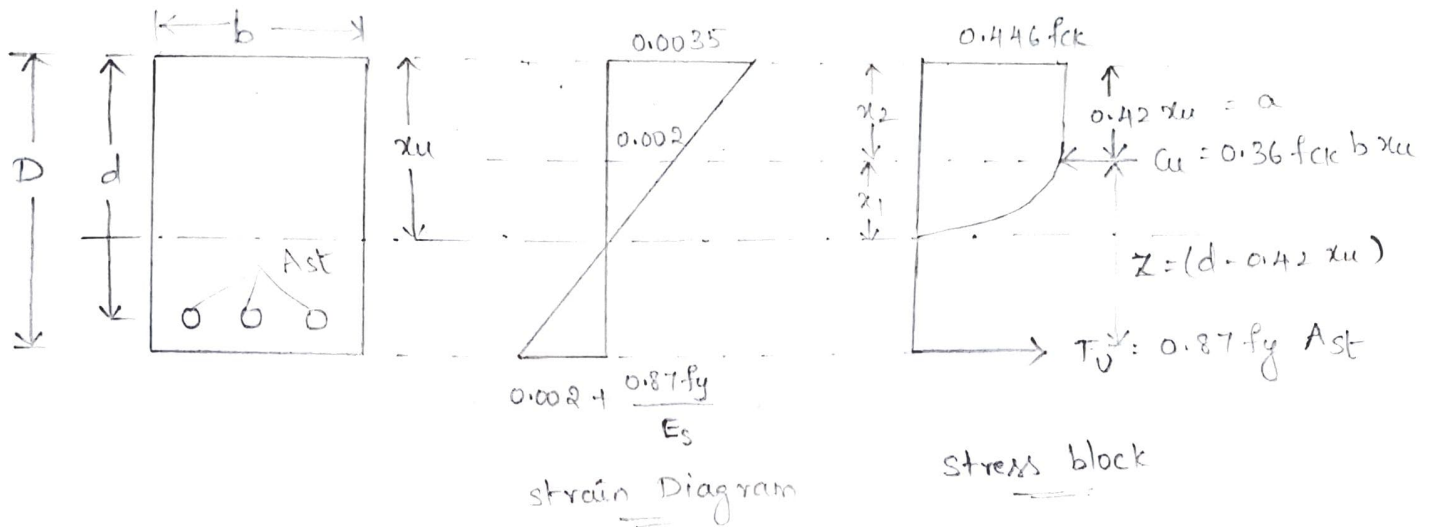 b
D
d
xu
Ast
0.0035
0.002
0.002 + 0.87 fy
Es
strain Diagram
0.446 fck
x2
x1
0.42 xu = a
Cu = 0.36 fck b xu
Z = (d - 0.42 xu)
Tu : 0.87 fy Ast
stress block